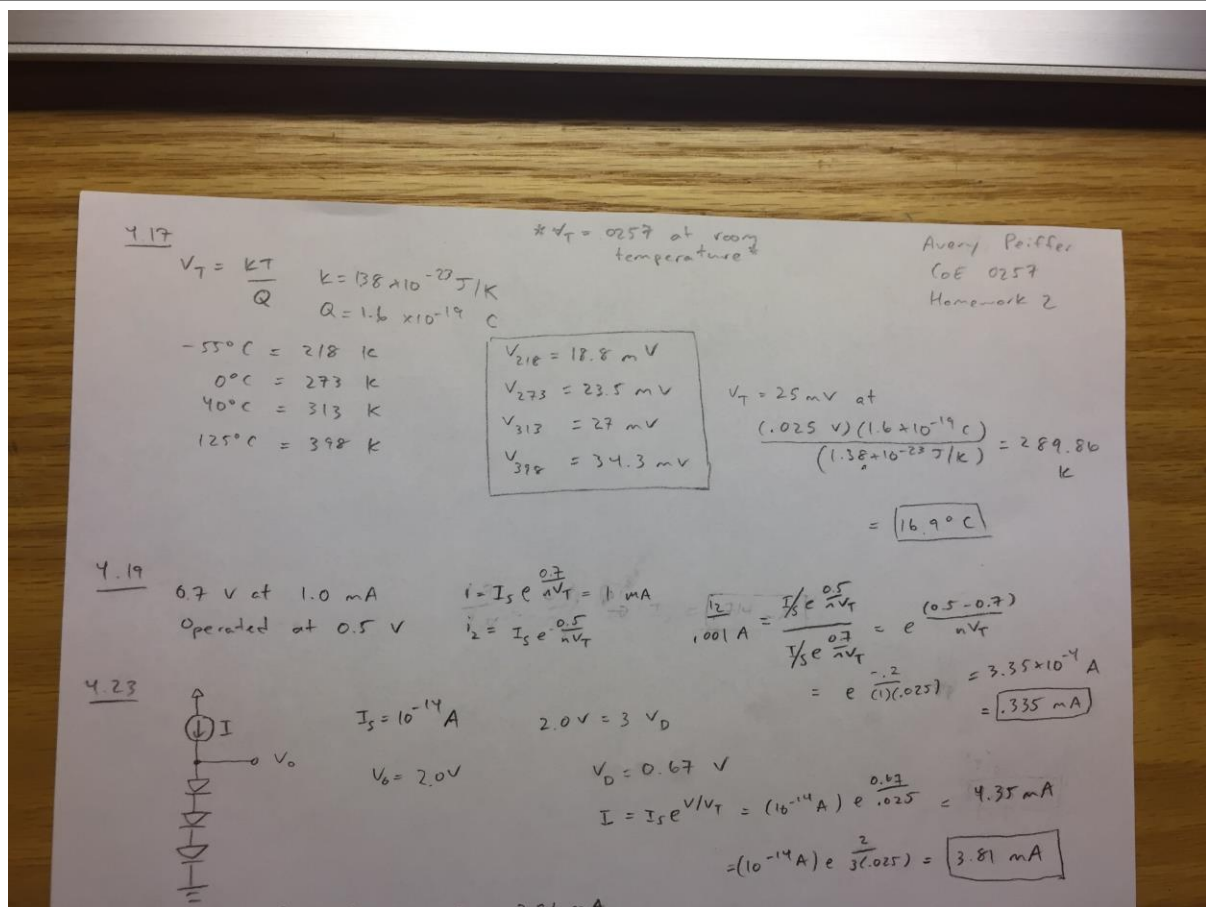 4.17
* VT = 0257 at room
temperature *
Avery Peiffer
CoE 0257
Homework 2
VT = KT / Q
K = 138 x10^-23 J/K
Q = 1.6 x10^-19 C
-55°C = 218 K
0°C = 273 K
40°C = 313 K
125°C = 398 K
V218 = 18.8 mV
V273 = 23.5 mV
V313 = 27 mV
V398 = 34.3 mV
VT = 25 mV at
(.025 V)(1.6 x10^-19 C) / (1.38 x10^-23 J/K) = 289.86
K
= 16.9° C
4.19
0.7 V at 1.0 mA
Operated at 0.5 V
i = Is e^(0.7/nVT) = 1 mA
i2 = Is e^(0.5/nVT)
i2 / .001 A = Is e^(0.5/nVT) / Is e^(0.7/nVT) = e^((0.5-0.7)/nVT)
= e^(-.2/(1)(.025)) = 3.35x10^-4 A
= .335 mA
4.23
I
Vo
Is = 10^-14 A
2.0V = 3 VD
Vo = 2.0V
VD = 0.67 V
I = Is e^(V/VT) = (10^-14 A) e^(0.67/.025) = 4.35 mA
= (10^-14 A) e^(2/3(.025)) = 3.81 mA